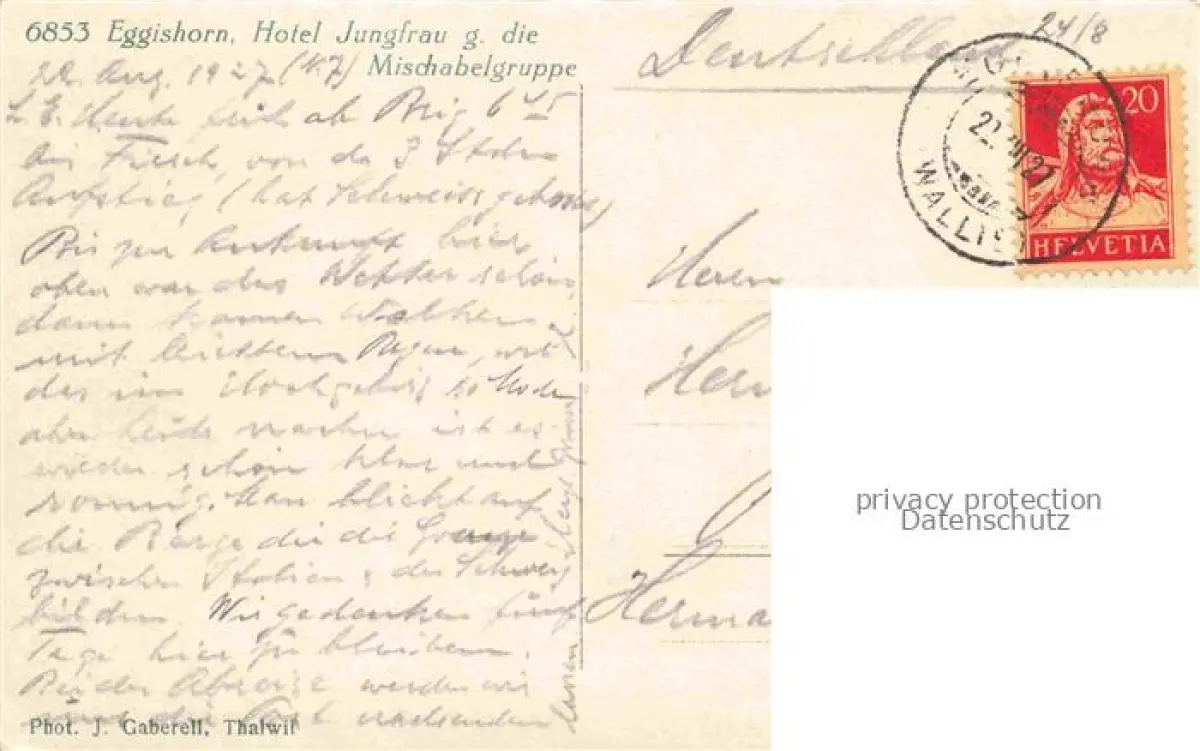 6853 Eggishorn, Hotel Jungfrau g. die
Mischabelgruppe
22. Aug. 1927
L. E. Heute früh ab Brig 6 45
bis Fiesch, von da 3 Stden
Aufstieg (hat Schweiss gekostet)
Bis zur Ankunft hier
oben war das Wetter schön,
dann kamen Wolken
mit leichtem Regen, wie
das im Hochgebirg so Mode
aber heute nachm ist es
wieder schön klar und
sonnig. Man blickt auf
die Berge die die Grenze
zwischen Italien & der Schweiz
bilden. Wir gedenken fünf
Tage hier zu bleiben.
Bei der Abreise werden wir
uns die Post nachsenden
lassen
Phot. J. Gaberell, Thalwil
Deutschland
24/8
20
HELVETIA
WALLIS
Herrn
Herm
Herma
privacy protection
Datenschutz